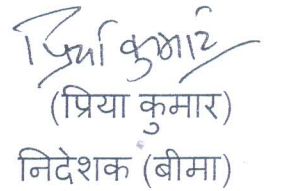 प्रिया कुमार
(प्रिया कुमार)
निदेशक (बीमा)